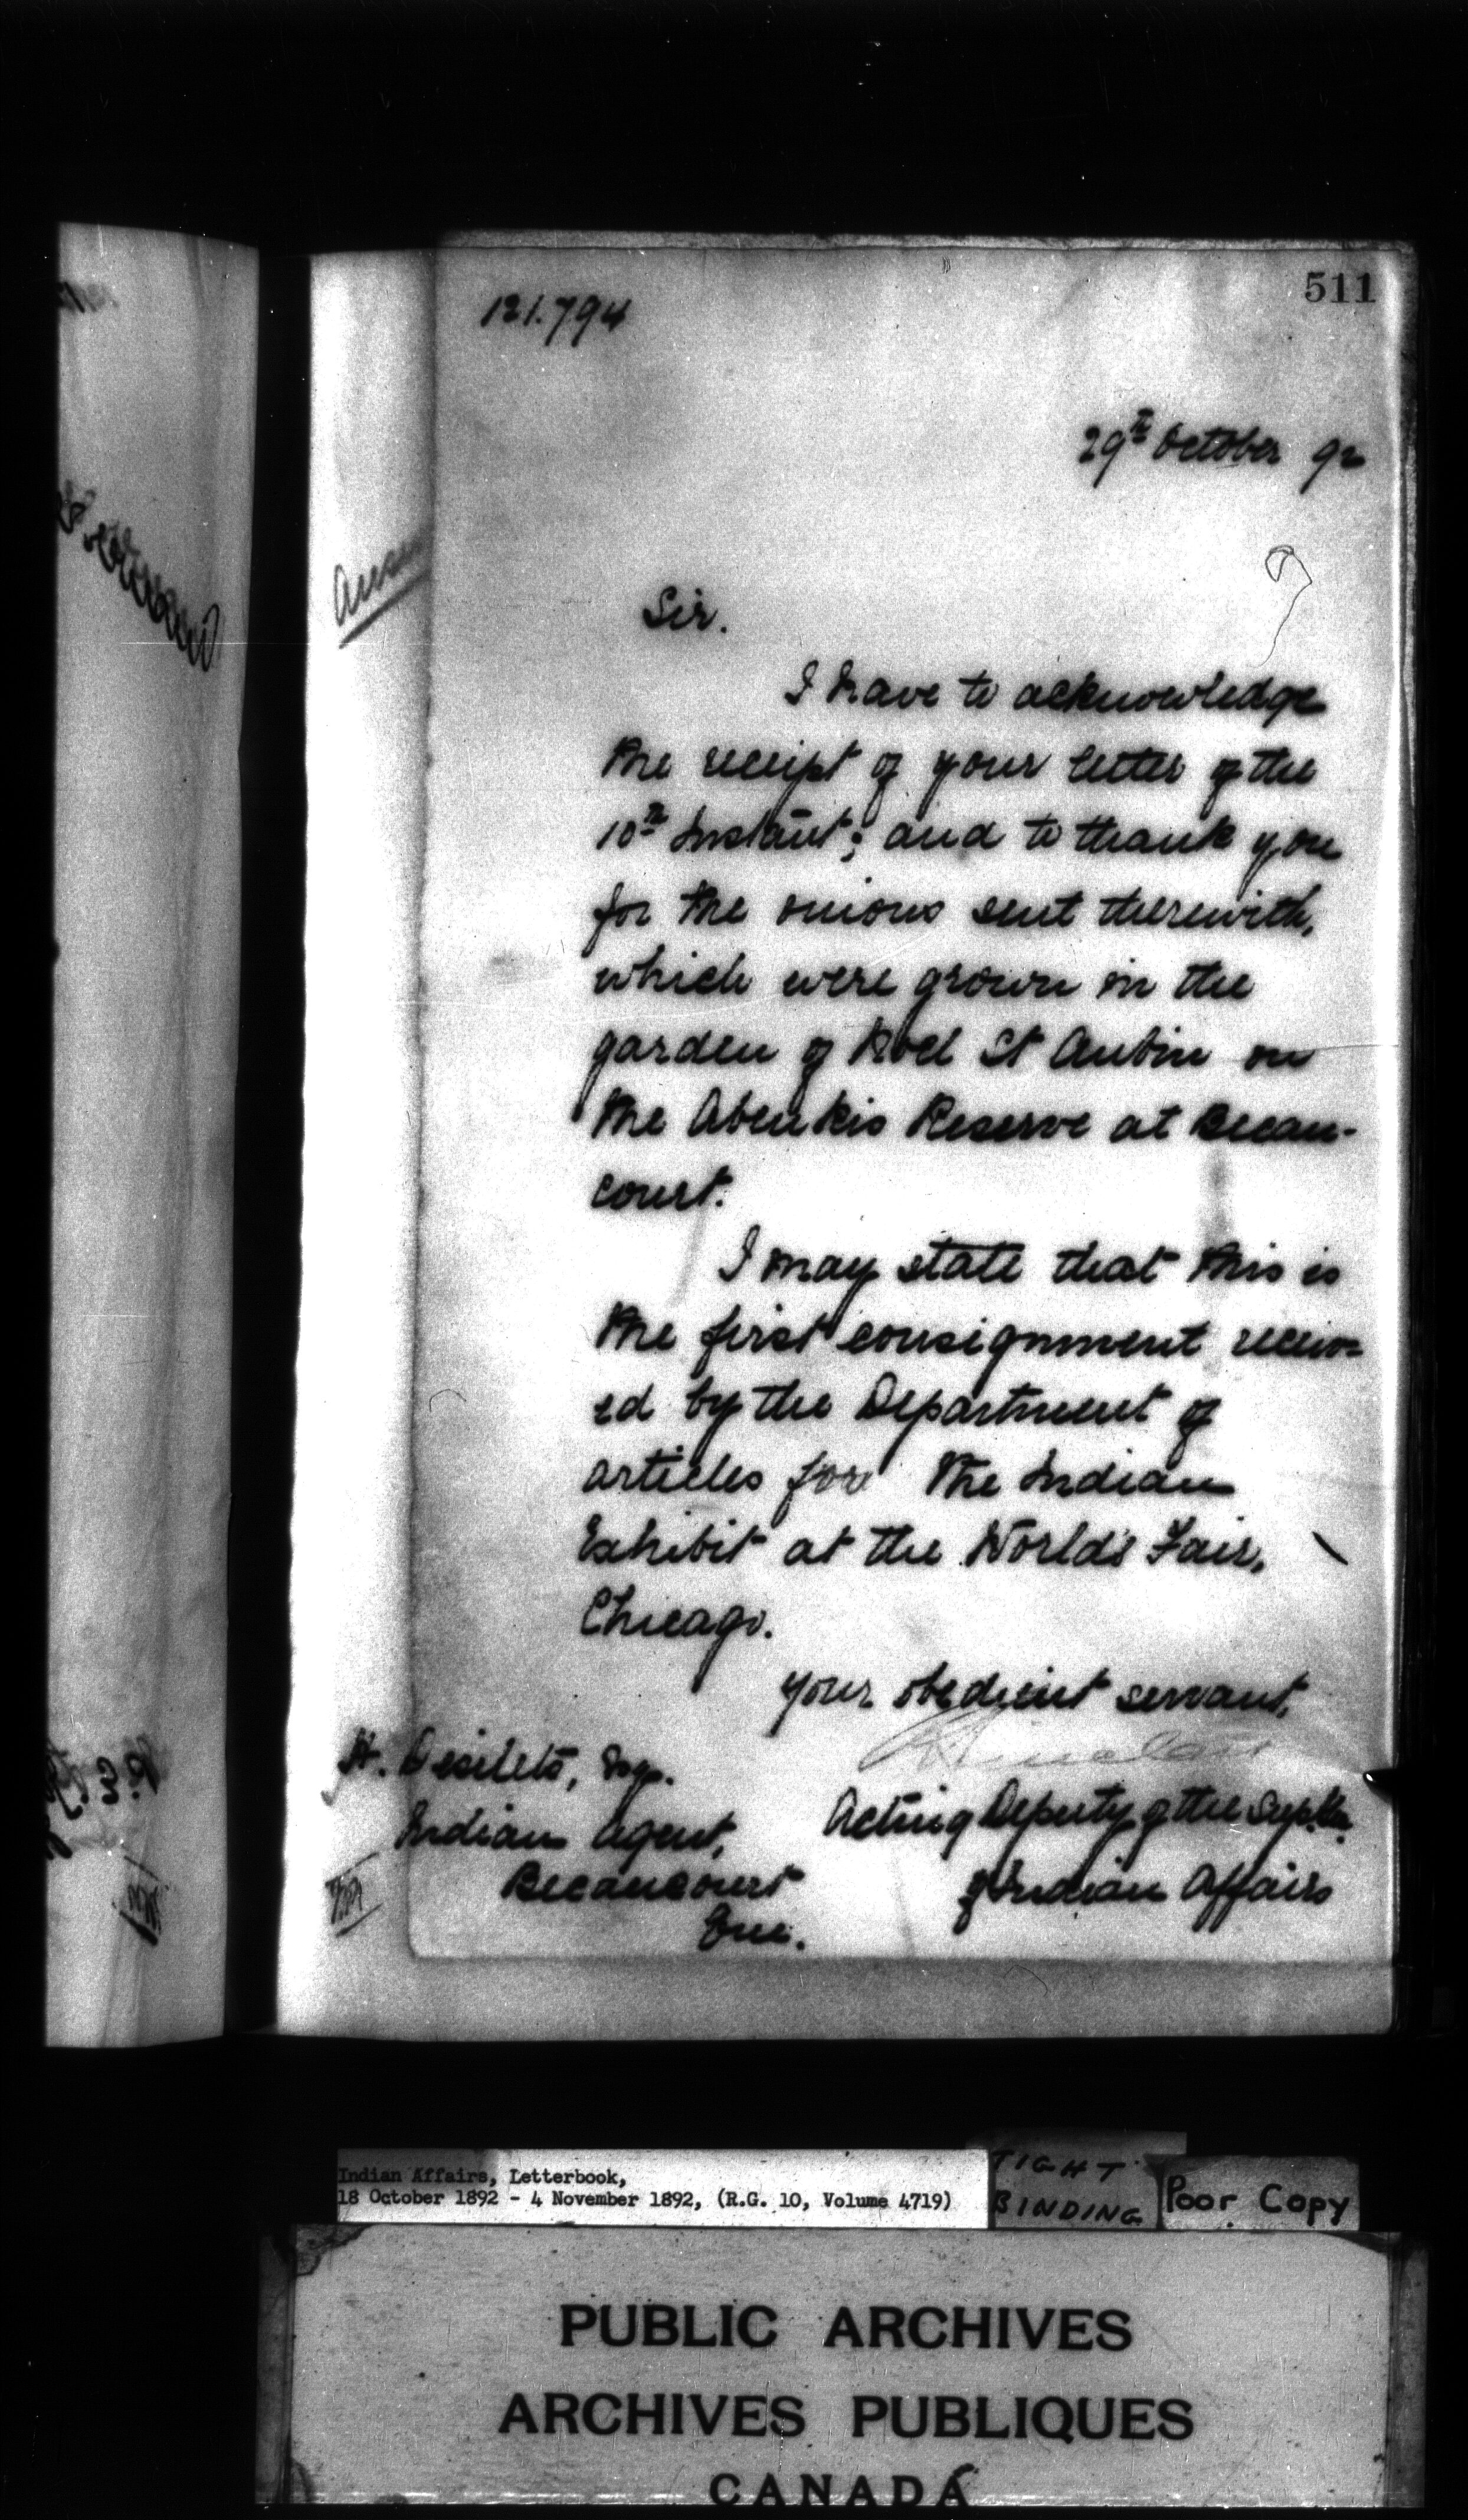 511
121.794
29th October 92
Sir.
I have to acknowledge
the receipt of your letter of the
10th Instant; and to thank you
for the onions sent therewith,
which were grown in the
garden of Noel St Aubin on
the Abenkis Reserve at Becan-
court.
I may state that this is
the first consignment receiv-
ed by the Department of
articles for the Indian
Exhibit at the World's Fair,
Chicago.
Your obedient servant,
H. Desilets, Esq.
Indian Agent,
Becancourt
Que.
Acting Deputy of the Supt.
of Indian Affairs
Indian Affairs, Letterbook,
18 October 1892 - 4 November 1892, (R.G. 10, Volume 4719)
TIGHT
BINDING
Poor Copy
PUBLIC ARCHIVES
ARCHIVES PUBLIQUES
CANADA